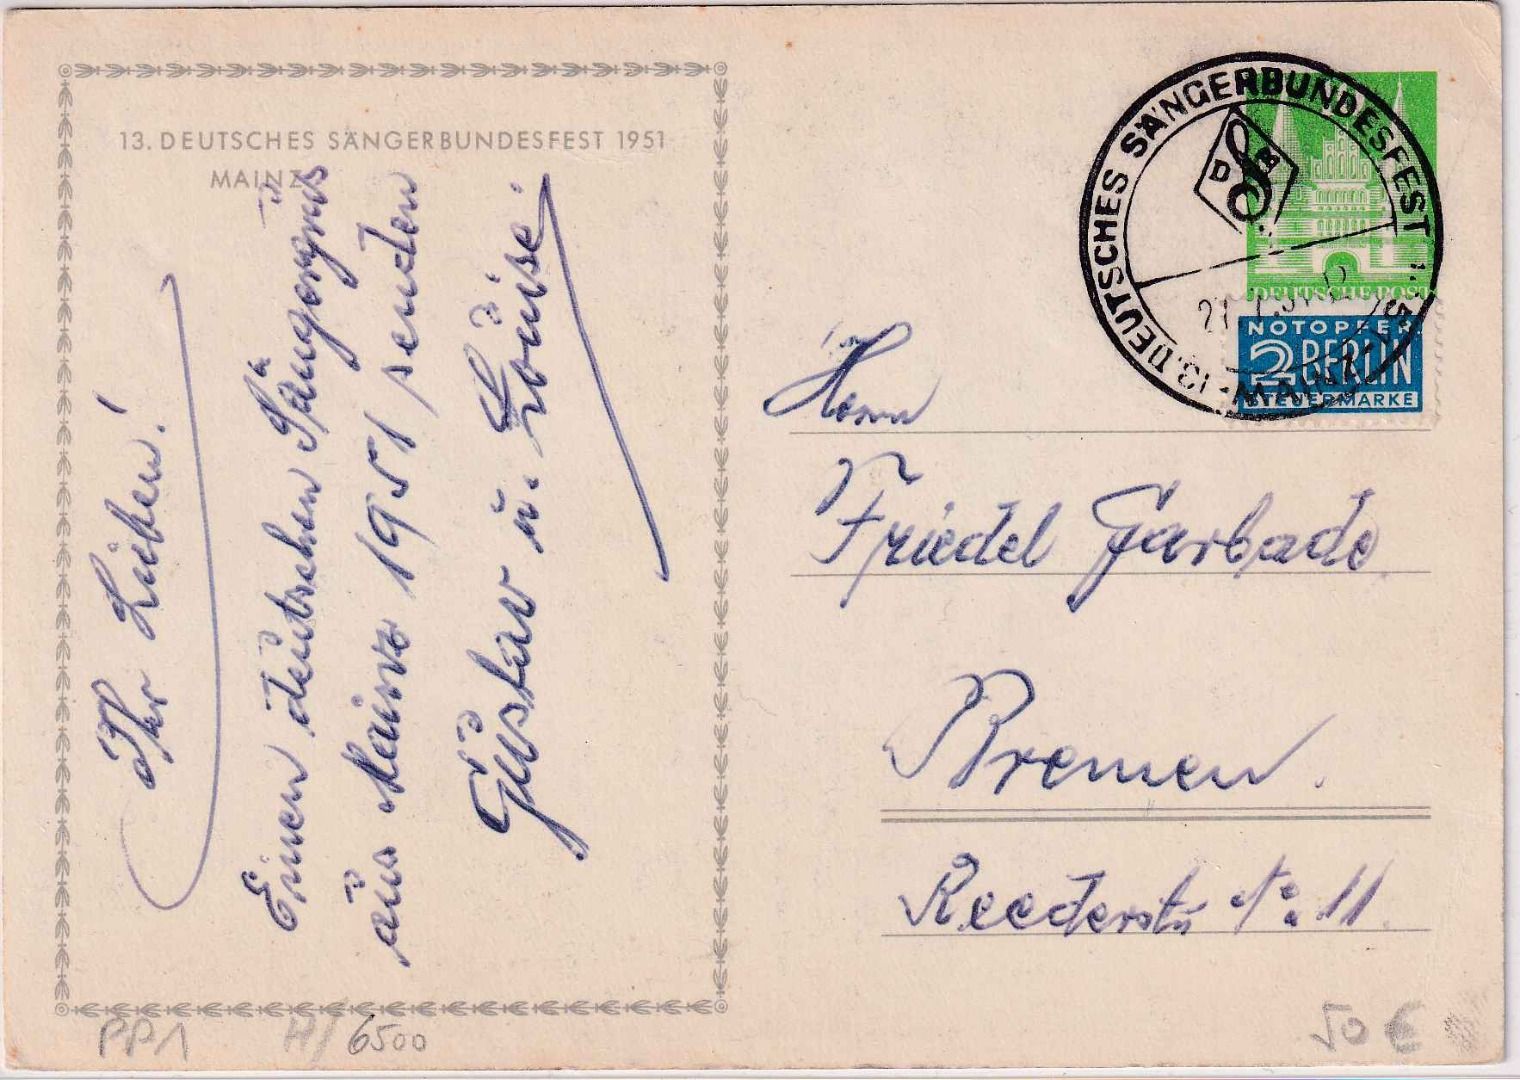 13. DEUTSCHES SÄNGERBUNDESFEST 1951
MAINZ
Ihr Lieben!
Einen deutschen Sängergruß
aus Mainz 1951 senden
Gustav u. Louise.
13. DEUTSCHES SÄNGERBUNDESFEST
D S B
MAINZ
DEUTSCHE POST
NOTOPFER
2 BERLIN
STEUERMARKE
Herrn
Friedel Garbade
Bremen.
Reederstr. No. 11.
PP1 H/6500
50 €